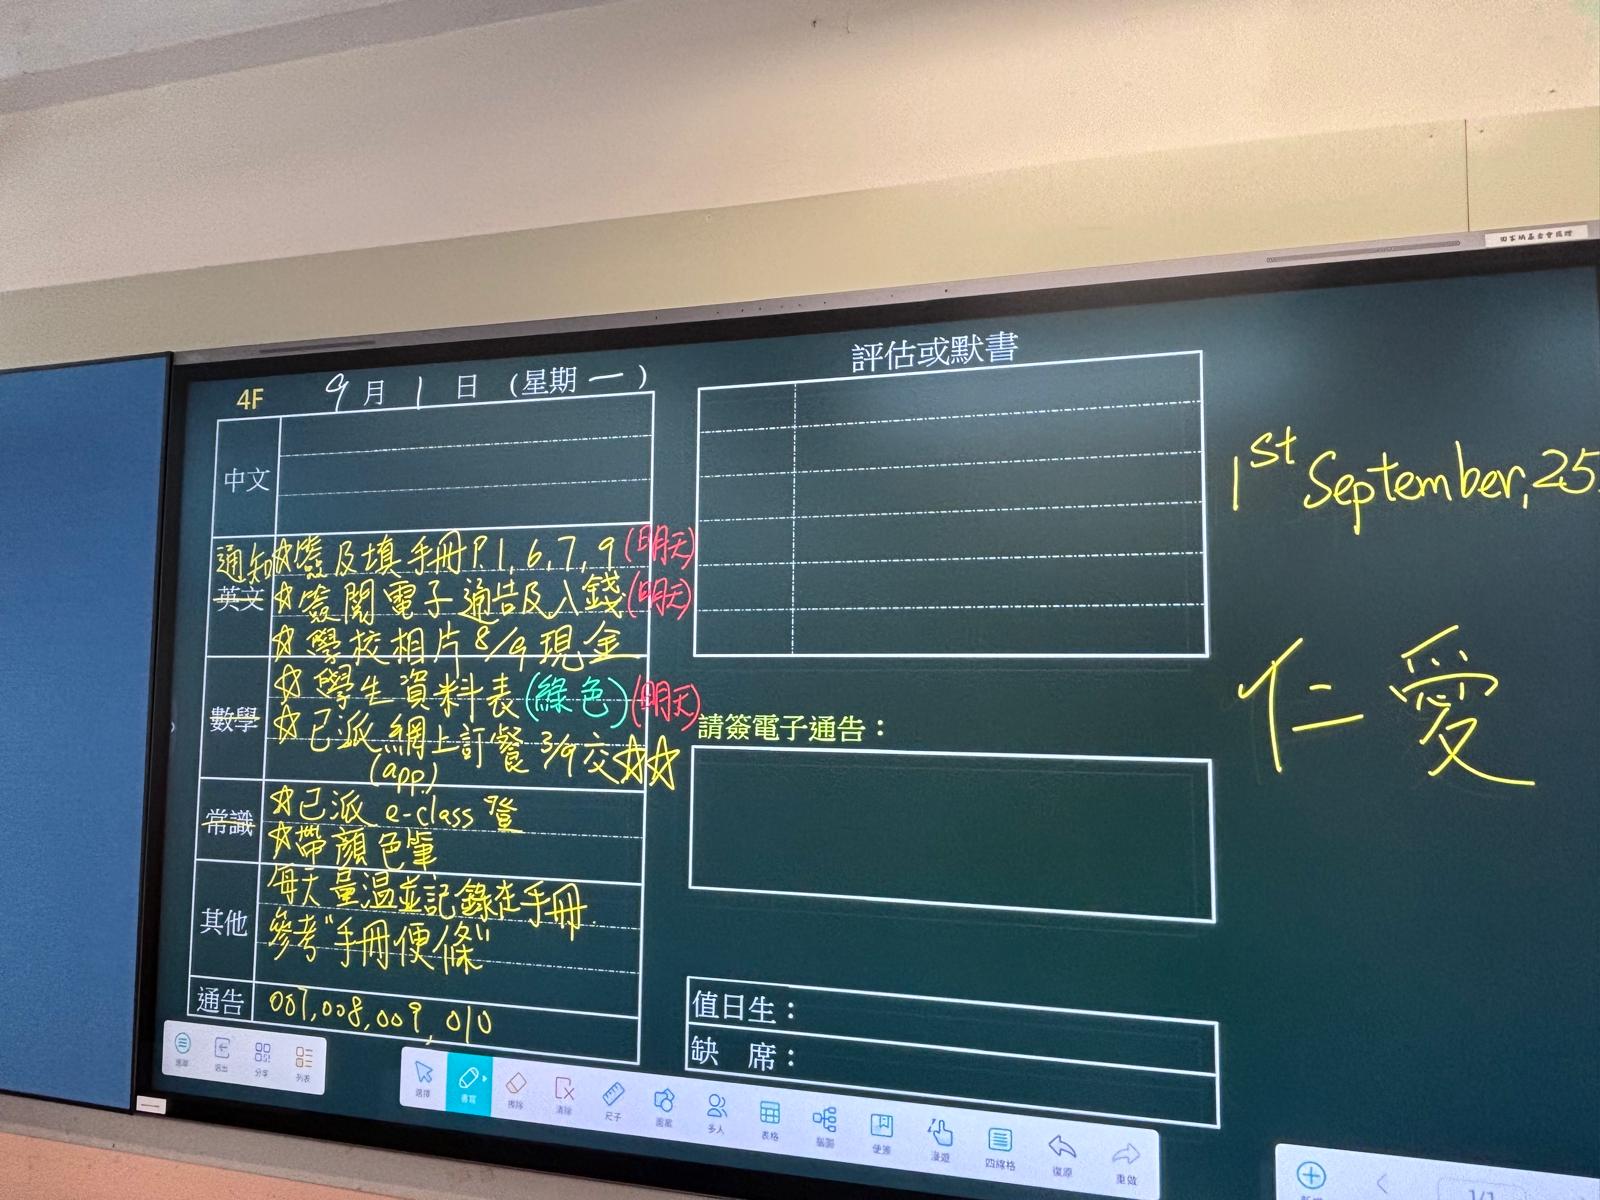 田家炳基金會捐贈
4F 9月1日 (星期一)
中文
通知 ☆簽及填手冊P.1,6,7,9 (明天)
英文 ☆簽閱電子通告及入錢 (明天)
☆學校相片8/9現金
☆學生資料表(綠色)(明天)
數學 ☆已派網上訂餐3/9交☆☆
(app)
常識 ☆已派e-class
☆帶顏色筆
每天量溫並記錄在手冊.
其他 參考"手冊便條"
通告 007,008,009,010
評估或默書
請簽電子通告：
值日生：
缺 席：
1st September,25
仁愛
選單 退出 分享 列表
選擇 書寫 擦除 清除 尺子 圖案 多人 表格 腦圖 便簽 漫遊 四線格 復原 重做
1/1